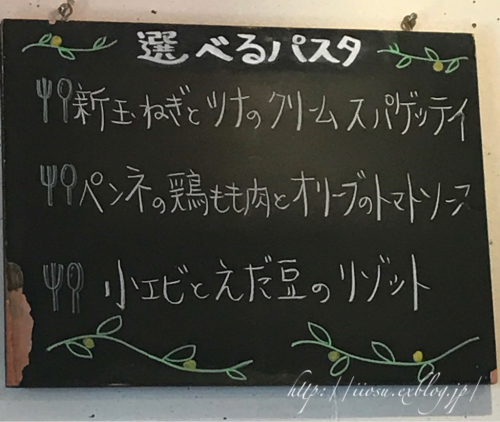 選べるパスタ
新玉ねぎとツナのクリームスパゲッティ
ペンネの鶏もも肉とオリーブのトマトソース
小エビとえだ豆のリゾット
http://iiosu.exblog.jp/